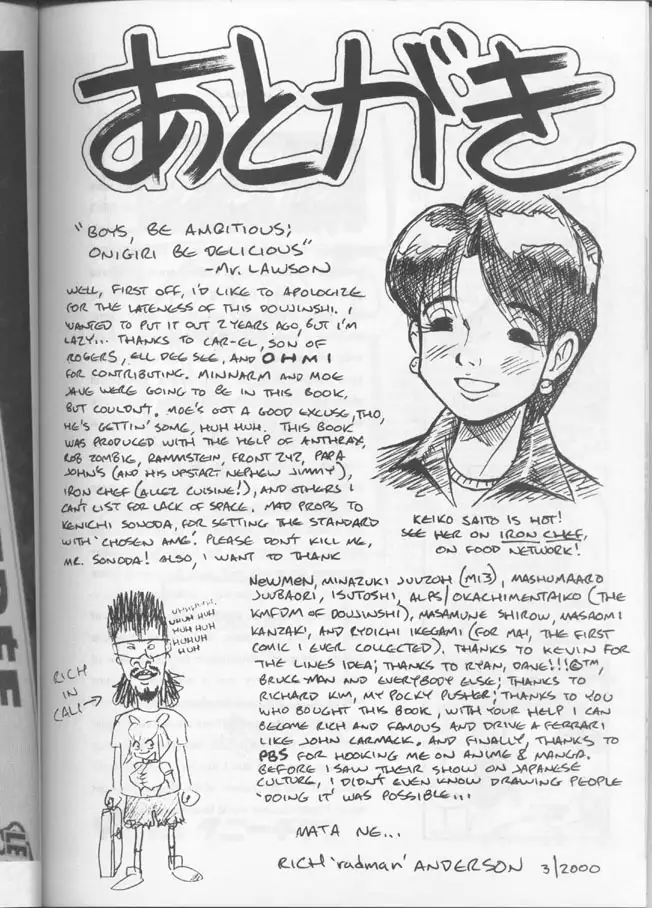 あとがき
"BOYS, BE AMBITIOUS;
ONIGIRI BE DELICIOUS"
-MR. LAWSON
WELL, FIRST OFF, I'D LIKE TO APOLOGIZE
FOR THE LATENESS OF THIS DOUJINSHI. I
WANTED TO PUT IT OUT 2 YEARS AGO, BUT I'M
LAZY... THANKS TO CAR-EL, SON OF
ROGERS, ELL DEE SEE, AND OHMI
FOR CONTRIBUTING. MINNARM AND MOE
JAVE WERE GOING TO BE IN THIS BOOK,
BUT COULDN'T. MOE'S GOT A GOOD EXCUSE, THO,
HE'S GETTIN' SOME, HUH HUH. THIS BOOK
WAS PRODUCED WITH THE HELP OF ANTHRAX,
ROB ZOMBIE, RAMMSTEIN, FRONT 242, PAPA
JOHN'S (AND HIS UPSTART NEPHEW JIMMY),
IRON CHEF (ALLEZ CUISINE!), AND OTHERS I
CAN'T LIST FOR LACK OF SPACE. MAD PROPS TO
KENICHI SONODA, FOR SETTING THE STANDARD
WITH 'CHOSEN AME'. PLEASE DON'T KILL ME,
MR. SONODA! ALSO, I WANT TO THANK
KEIKO SAITO IS HOT!
SEE HER ON IRON CHEF,
ON FOOD NETWORK!
NEWMEN, MINAZUKI JUUZOH (M13), MASHUMAARO
JUUBAORI, ISUTOSHI, ALPS/OKACHIMENTAIKO (THE
KMFDM OF DOUJINSHI), MASAMUNE SHIROW, MASAOMI
KANZAKI, AND RYOICHI IKEGAMI (FOR MAI, THE FIRST
COMIC I EVER COLLECTED). THANKS TO KEVIN FOR
THE LINES IDEA; THANKS TO RYAN, DAVE!!!©™,
BRUCE-MAN AND EVERYBODY ELSE; THANKS TO
RICHARD KIM, MY POCKY PUSHER; THANKS TO YOU
WHO BOUGHT THIS BOOK, WITH YOUR HELP I CAN
BECOME RICH AND FAMOUS AND DRIVE A FERRARI
LIKE JOHN CARMACK. AND FINALLY, THANKS TO
PBS FOR HOOKING ME ON ANIME & MANGA.
BEFORE I SAW THEIR SHOW ON JAPANESE
CULTURE, I DIDN'T EVEN KNOW DRAWING PEOPLE
'DOING IT' WAS POSSIBLE...
MATA NE...
RICH 'radman' ANDERSON 3/2000
UHUH HUH
HUH HUH
HUHUH
HUH
RICH
IN
CALI